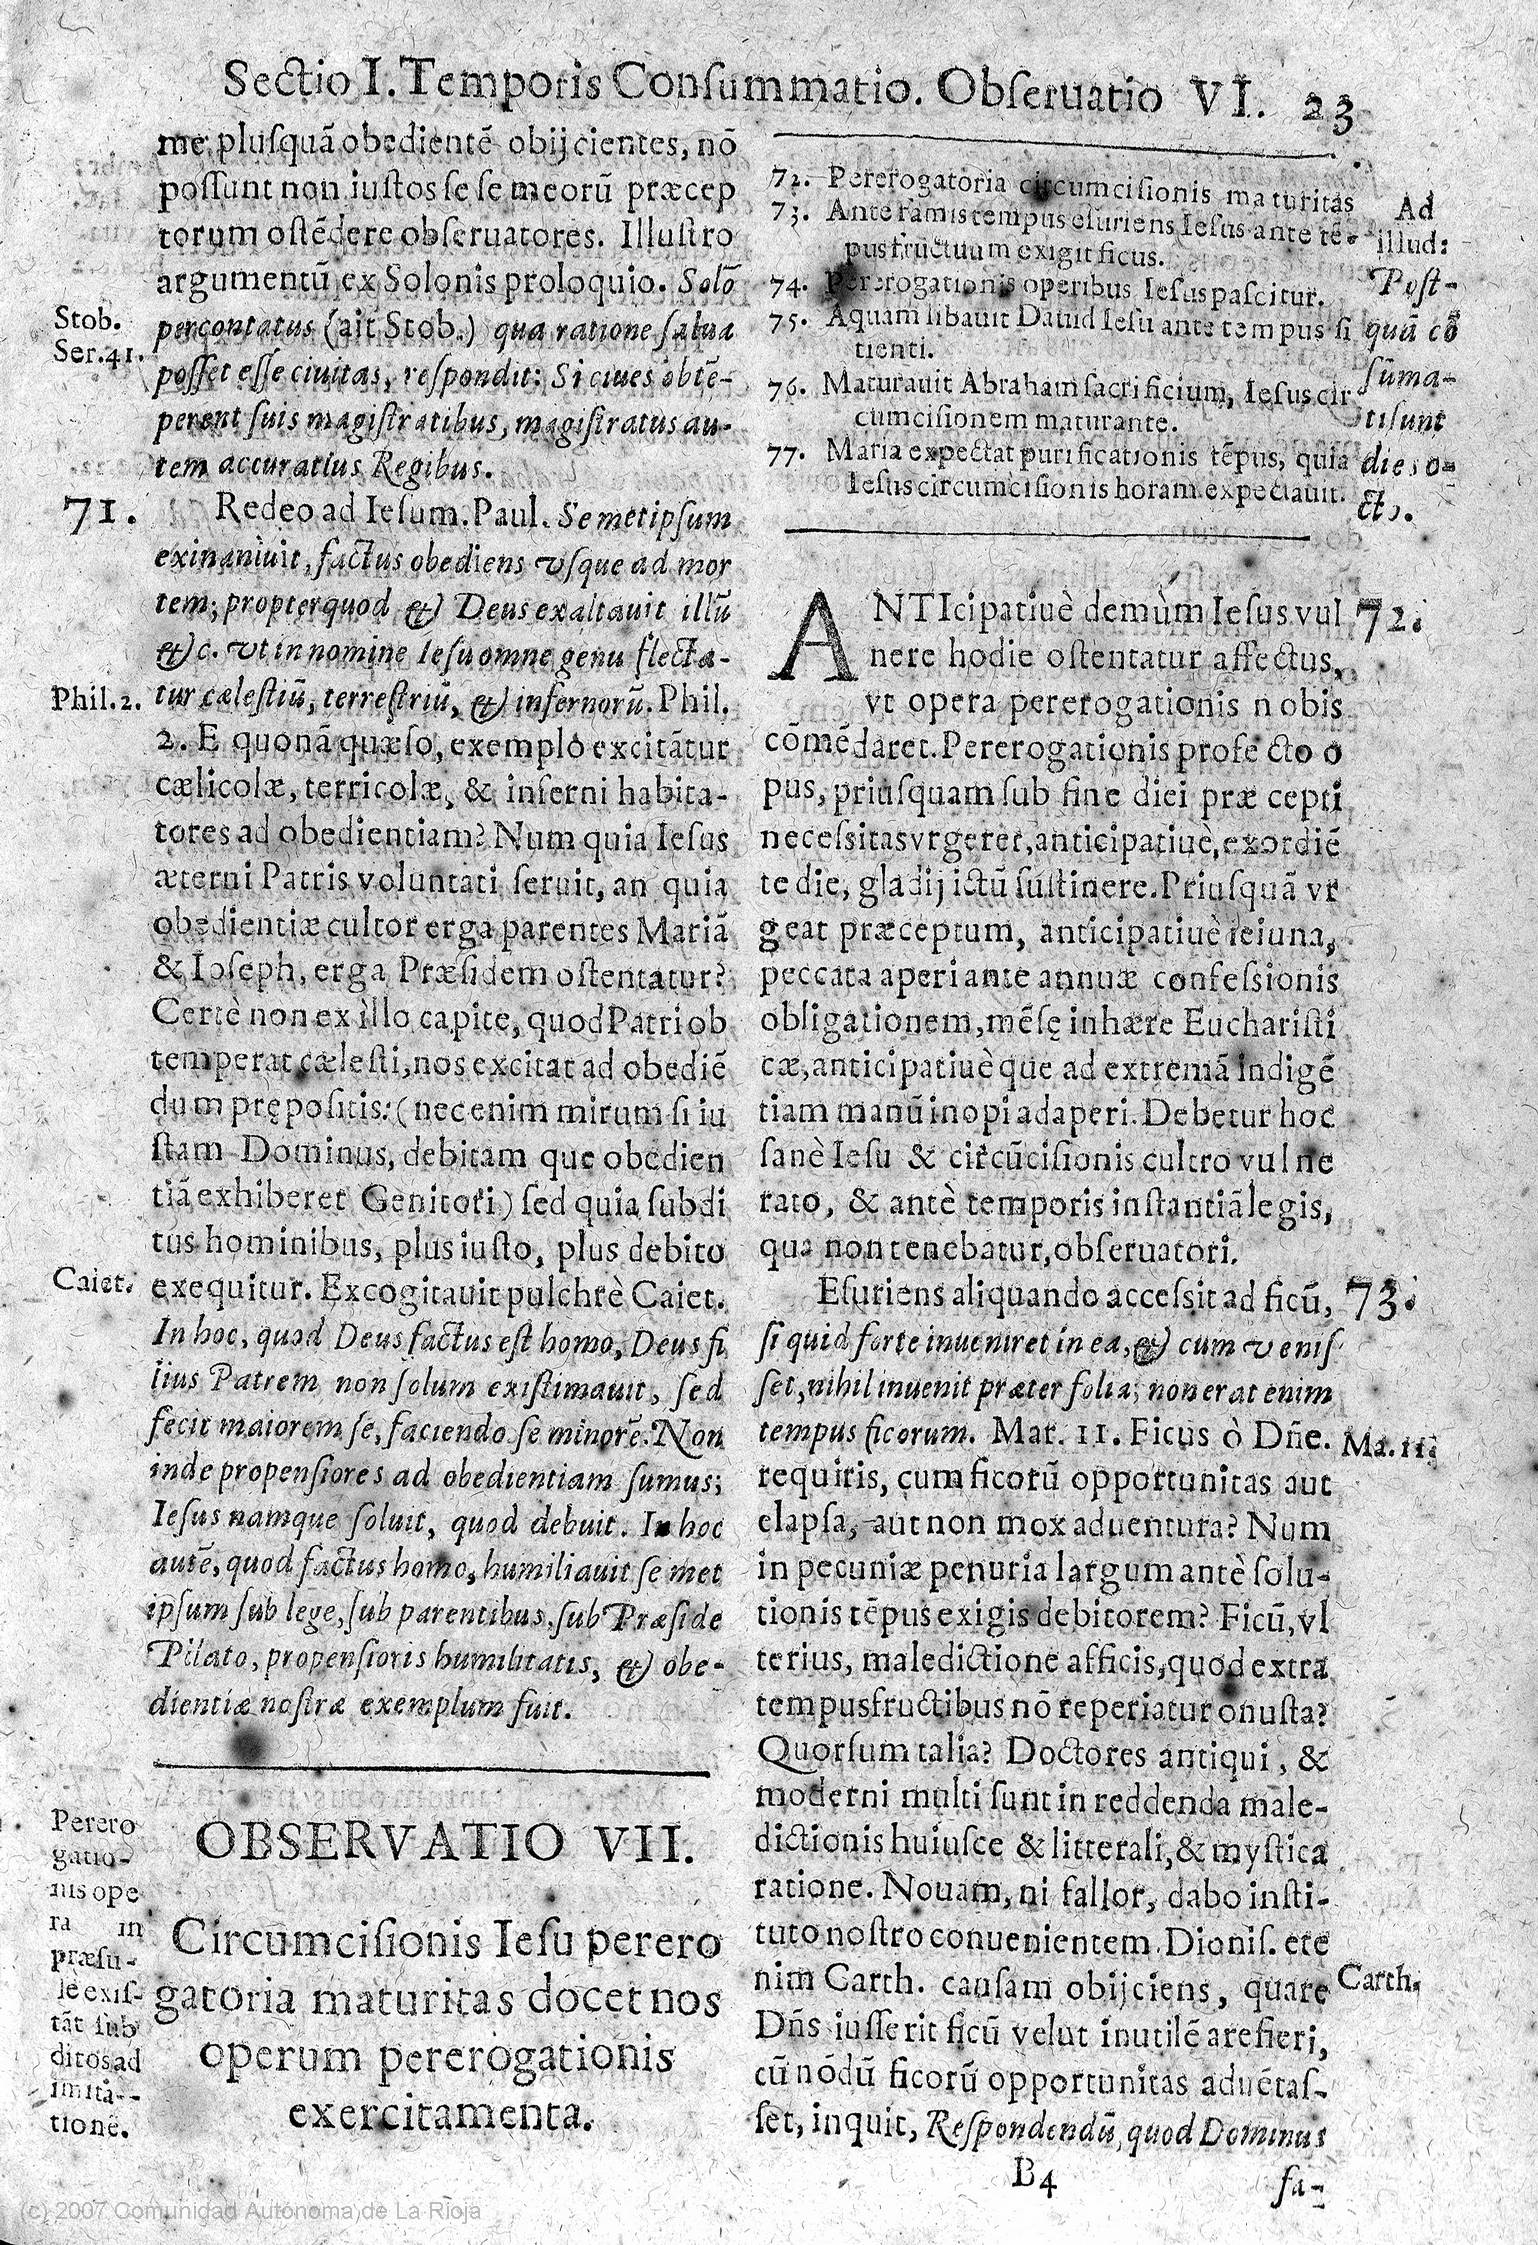 Sectio I. Temporis Consummatio. Obseruatio VI. 23
me plusquã obedientẽ obijcientes, nõ
possunt non iustos se se meorũ præcep
torum ostẽdere obseruatores. Illustro
argumentũ ex Solonis proloquio. Solõ
percontatus (ait Stob.) qua ratione salua
posset esse ciuitas, respondit: Si ciues obtẽ-
perent suis magistratibus, magistratus au-
tem accuratius Regibus.
Stob.
Ser.41.
71.
Redeo ad Iesum. Paul. Semetipsum
exinaniuit, factus obediens vsque ad mor
tem; propter quod & Deus exaltauit illũ
&c. vt in nomine Iesu omne genu flecta-
tur cælestiũ, terrestriũ, & infernorũ. Phil.
Phil.2.
2. E quonã quæso, exemplo excitãtur
cælicolæ, terricolæ, & inferni habita-
tores ad obedientiam? Num quia Iesus
æterni Patris voluntati seruit, an quia
obedientiæ cultor erga parentes Mariã
& Ioseph, erga Præsidem ostentatur?
Certè non ex illo capite, quod Patri ob
temperat cælesti, nos excitat ad obediẽ
dum prępositis: (nec enim mirum si iu
stam Dominus, debitam que obedien
tiã exhiberet Genitori) sed quia subdi
tus hominibus, plus iusto, plus debito
exequitur. Excogitauit pulchrè Caiet.
Caiet.
In hoc, quod Deus factus est homo, Deus fi
lius Patrem non solum existimauit, sed
fecit maiorem se, faciendo se minorẽ. Non
inde propensiores ad obedientiam sumus;
Iesus namque soluit, quod debuit. In hoc
autẽ, quod factus homo, humiliauit se met
ipsum sub lege, sub parentibus, sub Præside
Pilato, propensioris humilitatis, & obe-
dientiæ nostræ exemplum fuit.
OBSERVATIO VII.
Circumcisionis Iesu perero
gatoria maturitas docet nos
operum pererogationis
exercitamenta.
Perero
gatio-
nis ope
ra in
præsu-
le exis-
tãt sub
ditos ad
imita-
tionẽ.
72. Pererogatoria circumcisionis maturitas
73. Ante ramis tempus esuriens Iesus ante tẽ-
pus fructuum exigit ficus.
74. Pererogationis operibus Iesus pascitur.
75. Aquam libauit Dauid Iesu ante tempus si
tienti.
76. Maturauit Abraham sacrificium, Iesus cir
cumcisionem maturante.
77. Maria expectat purificationis tẽpus, quia
Iesus circumcisionis horam expectauit.
Ad
illud:
Post-
quã cõ
suma-
ti sunt
dies o-
cto.
ANTIcipatiuè demùm Iesus vul
nere hodie ostentatur affectus,
vt opera pererogationis nobis
cõmẽdaret. Pererogationis profecto o
pus, priusquam sub fine diei præcepti
necessitas vrgeret, anticipatiuè, exordiẽ
te die, gladij ictũ sustinere. Priusquã vr
geat præceptum, anticipatiuè ieiuna,
peccata aperi ante annuæ confessionis
obligationem, mẽsę inhære Eucharisti
cæ, anticipatiuè que ad extremã indigẽ
tiam manũ inopi adaperi. Debetur hoc
sanè Iesu & circũcisionis cultro vulne
rato, & antè temporis instantiã legis,
qua non tenebatur, obseruatori.
72.
Esuriens aliquando accessit ad ficũ,
73.
si quid forte inueniret in ea, & cum venis
set, nihil inuenit præter folia; non erat enim
tempus ficorum. Mar. 11. Ficus ò Dñe.
Ma.11.
requiris, cum ficorũ opportunitas aut
elapsa, aut non mox aduentura? Num
in pecuniæ penuria largum antè solu-
tionis tẽpus exigis debitorem? Ficũ, vl
terius, maledictione afficis, quod extra
tempus fructibus nõ reperiatur onusta?
Quorsum talia? Doctores antiqui, &
moderni multi sunt in reddenda male-
dictionis huiusce & litterali, & mystica
ratione. Nouam, ni fallor, dabo insti-
tuto nostro conuenientem. Dionis. ete
nim Carth. causam obijciens, quare
Carth.
Dñs iusserit ficũ velut inutilẽ arefieri,
cũ nõdũ ficorũ opportunitas aduẽtas-
set, inquit, Respondendũ, quod Dominus
B4
fa-
(c) 2007 Comunidad Autónoma de La Rioja